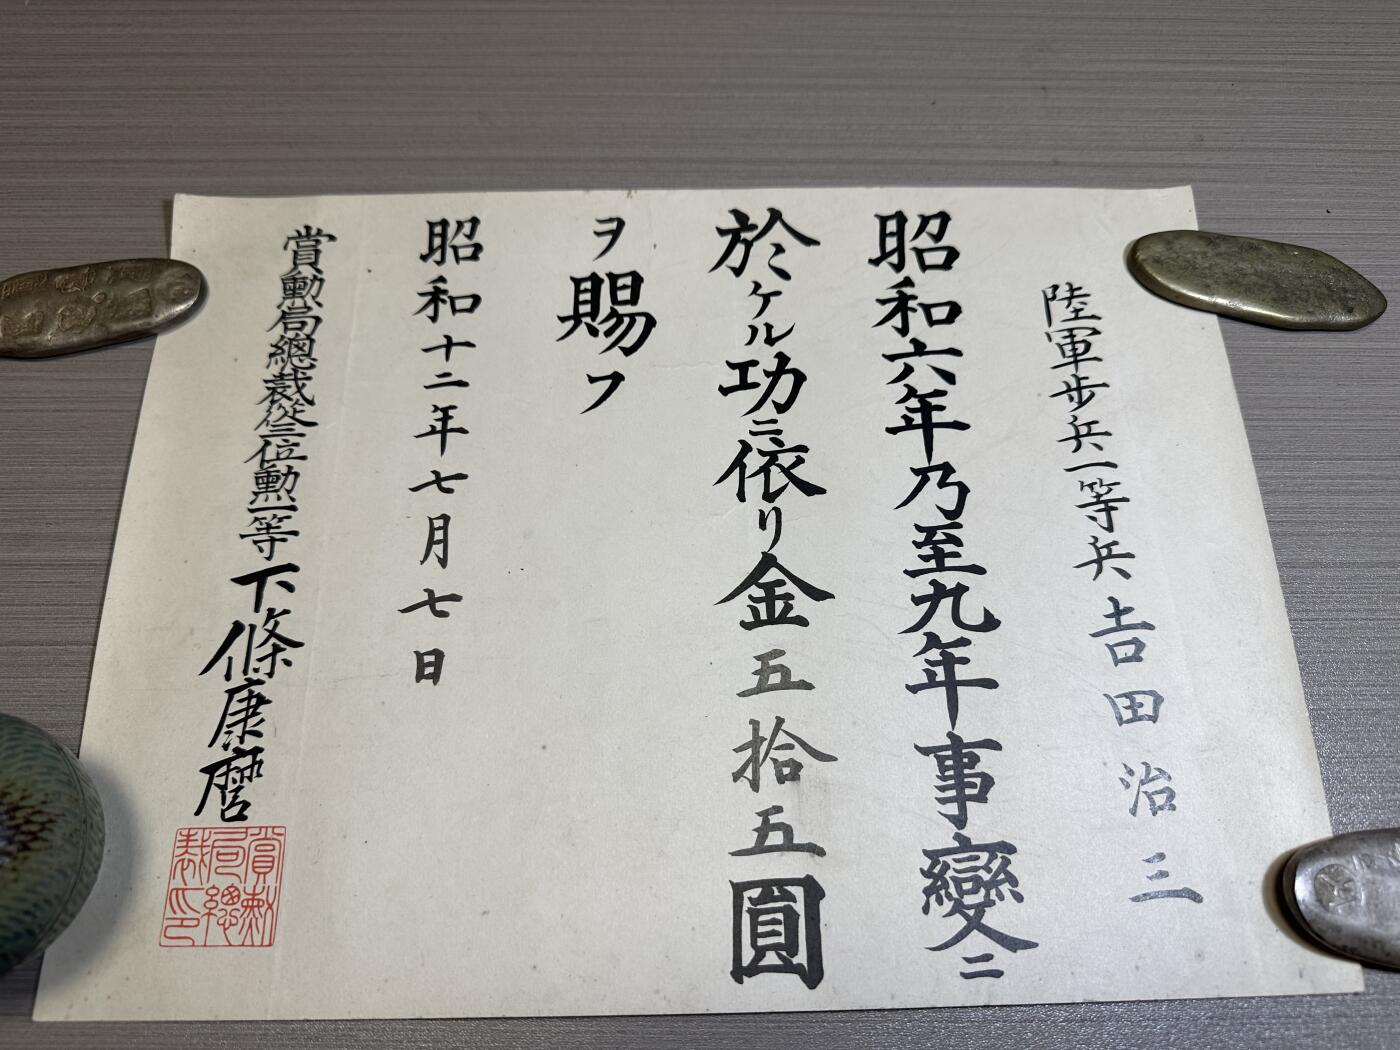 陸軍歩兵一等兵吉田治三
昭和六年乃至九年事變ニ
於ケル功ニ依リ金五拾五圓
ヲ賜フ
昭和十二年七月七日
賞勲局總裁從三位勲一等下條康麿
賞勲局總裁印